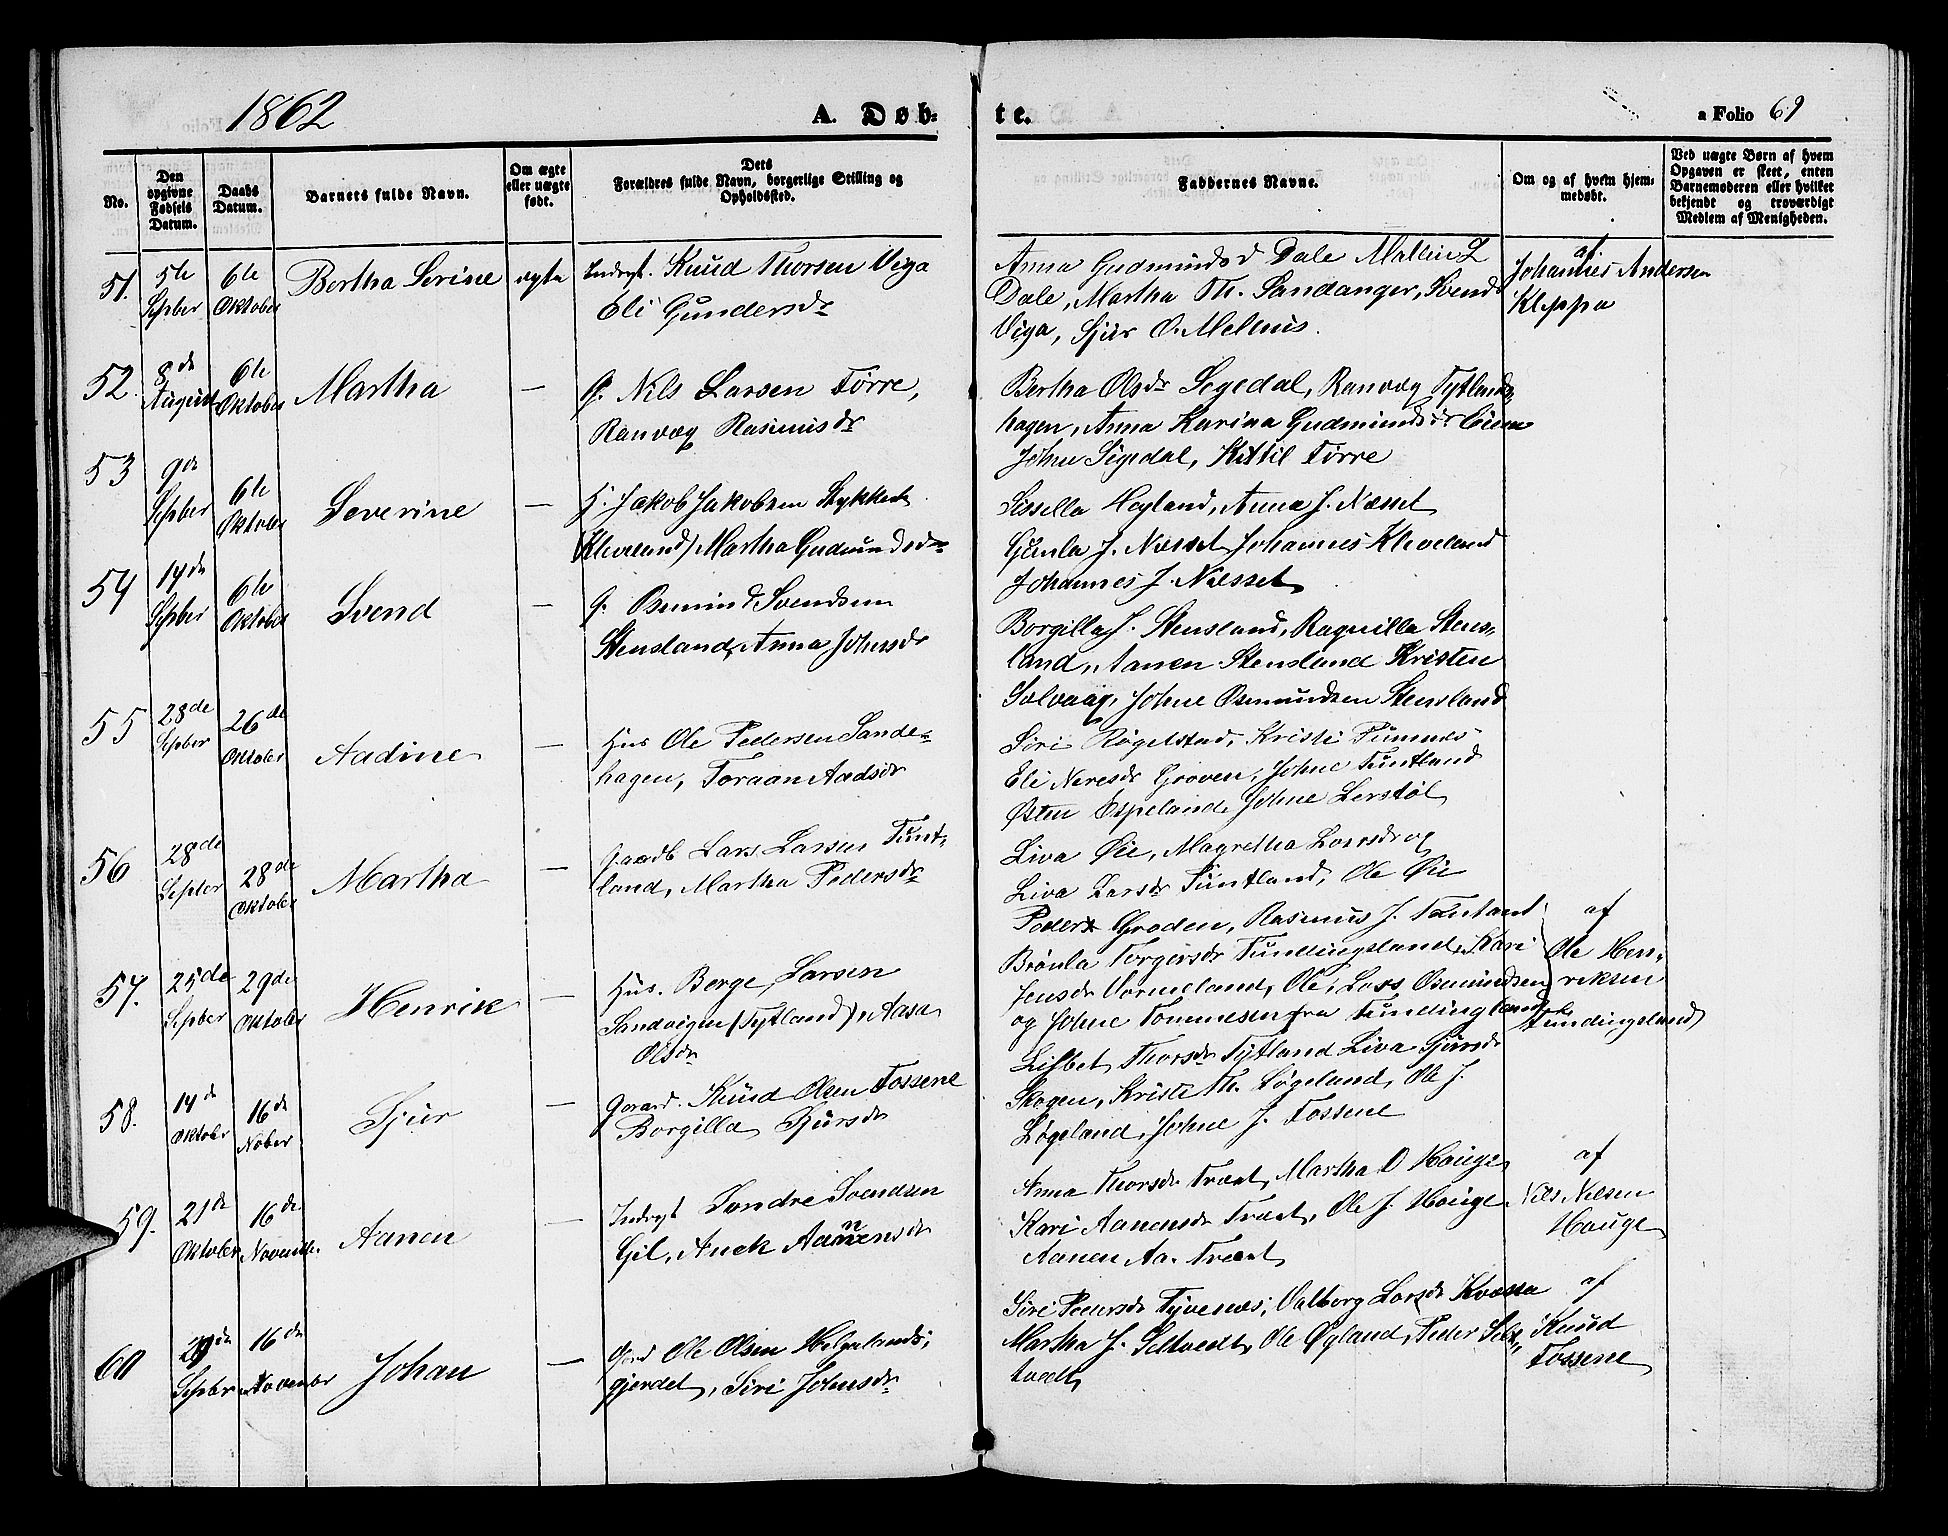 1862
A. Døb-
te.
a Folio 69
No.
Den opgivne Fødsels Datum.
Daabs Datum.
Barnets fulde Navn.
Om ægte eller uægte født.
Dets Forældres fulde Navn, borgerlige Stilling og Opholdssted.
Faddernes Navne.
Om og af hvem hjemmedøbt.
Ved uægte Børn af hvem Opgaven er skeet, enten Barnemoderen eller hvilket bekjendt og troværdigt Medlem af Menigheden.
51. 5te Sepber 6te Oktober Bertha Serine ægte Inderst. Knud Thorsen Viga
Eli Gundersdr
Anna Gudmundsd Dale Mallin L
Dale, Martha Th. Sandanger, Svend
Viga, Sjur O. Melhus.
af Johannes Andersen
Kleppa
52. 8de August 6te Oktober Martha — G. Nils Larsen Tørre,
Ranvæg Rasmusdr
Bertha Olsdr Segedal, Ranvæg Tytlands-
hagen, Anna Karina Gudmundsdr
John Segedal, Kittil Tørre
53 9de Sepber 6te Oktober Severine — H. Jakob Jakobsen Stykket
(Kleveland) Martha Gudmundsdr
Sissella Høyland, Anna J. Næsset
Gunla J. Næsset Johannes Kleveland
Johannes J. Næsset
54 14de Sepber 6te Oktober Svend — G. Osmund Svendsen
Stensland, Anna Johnsdr
Borgilla J. Stensland, Ragnilla Stens-
land, Aanen Stensland Kristen
Solvaag, Johne Osmundsen Stensland
55 28de Sepber 26de Oktober Aadine — Hus Ole Pedersen Sande-
hagen, Toraan Aadsdr
Siri Røgelstad, Kristi Pumnes
Eli Neresdr Groven, Johne Tuntland
Østen Espeland Johne Lerstøl
56 28de Sepber 28de Oktober Martha — Gaardb Lars Larsen Tunt-
land, Martha Pedersdr
Liva Øie, Magretha Larsdr og
Liva Larsdr Tuntland, Ole Øie
Peder Groden, Rasmus J. Tuntland
57. 25de Sepber 29de Oktober Henrik — Hus. Borge Larsen
Sandvigen (Tytland) Aasa
Olsdr
Brønla Torgersdr Tundingsland, Kari
Jensdr Vormeland, Ole, Lars Osmundsen
og Johne Tommesen fra Tundingland
af
Ole Hen-
riksen
Tundingsland
58. 14de Oktober 16de Nober Sjur — Gaard. Knud Olsen Fossene
Borgilla Sjursdr
Lisbet Thorsdr Tytland Liva Sjursdr
Skogen, Kristi Th. Løgeland, Ole J.
Løgeland, Johne J. Fossene
59. 21de Oktober 16de Novembr. Aanen — Inderst Sondre Svendsen
Gil, Anek Aanensdr
Anna Thorsdr Træet, Martha O Houge
Kari Aanensdr Træet, Ole J. Houge
Aanen Aa. Træet
af
Nils Nilsen
Houge
60 29de Sepber 16de November Johan — Gaard Ole Olsen Helgelands-
gjerdet, Siri Johnsdr
Siri Pedersdr Tyvenes, Valborg Larsdr Kvæsta
Martha J. Seltvedt, Ole Øgland, Peder Selt-
tvedt
af
Knud
Fossene